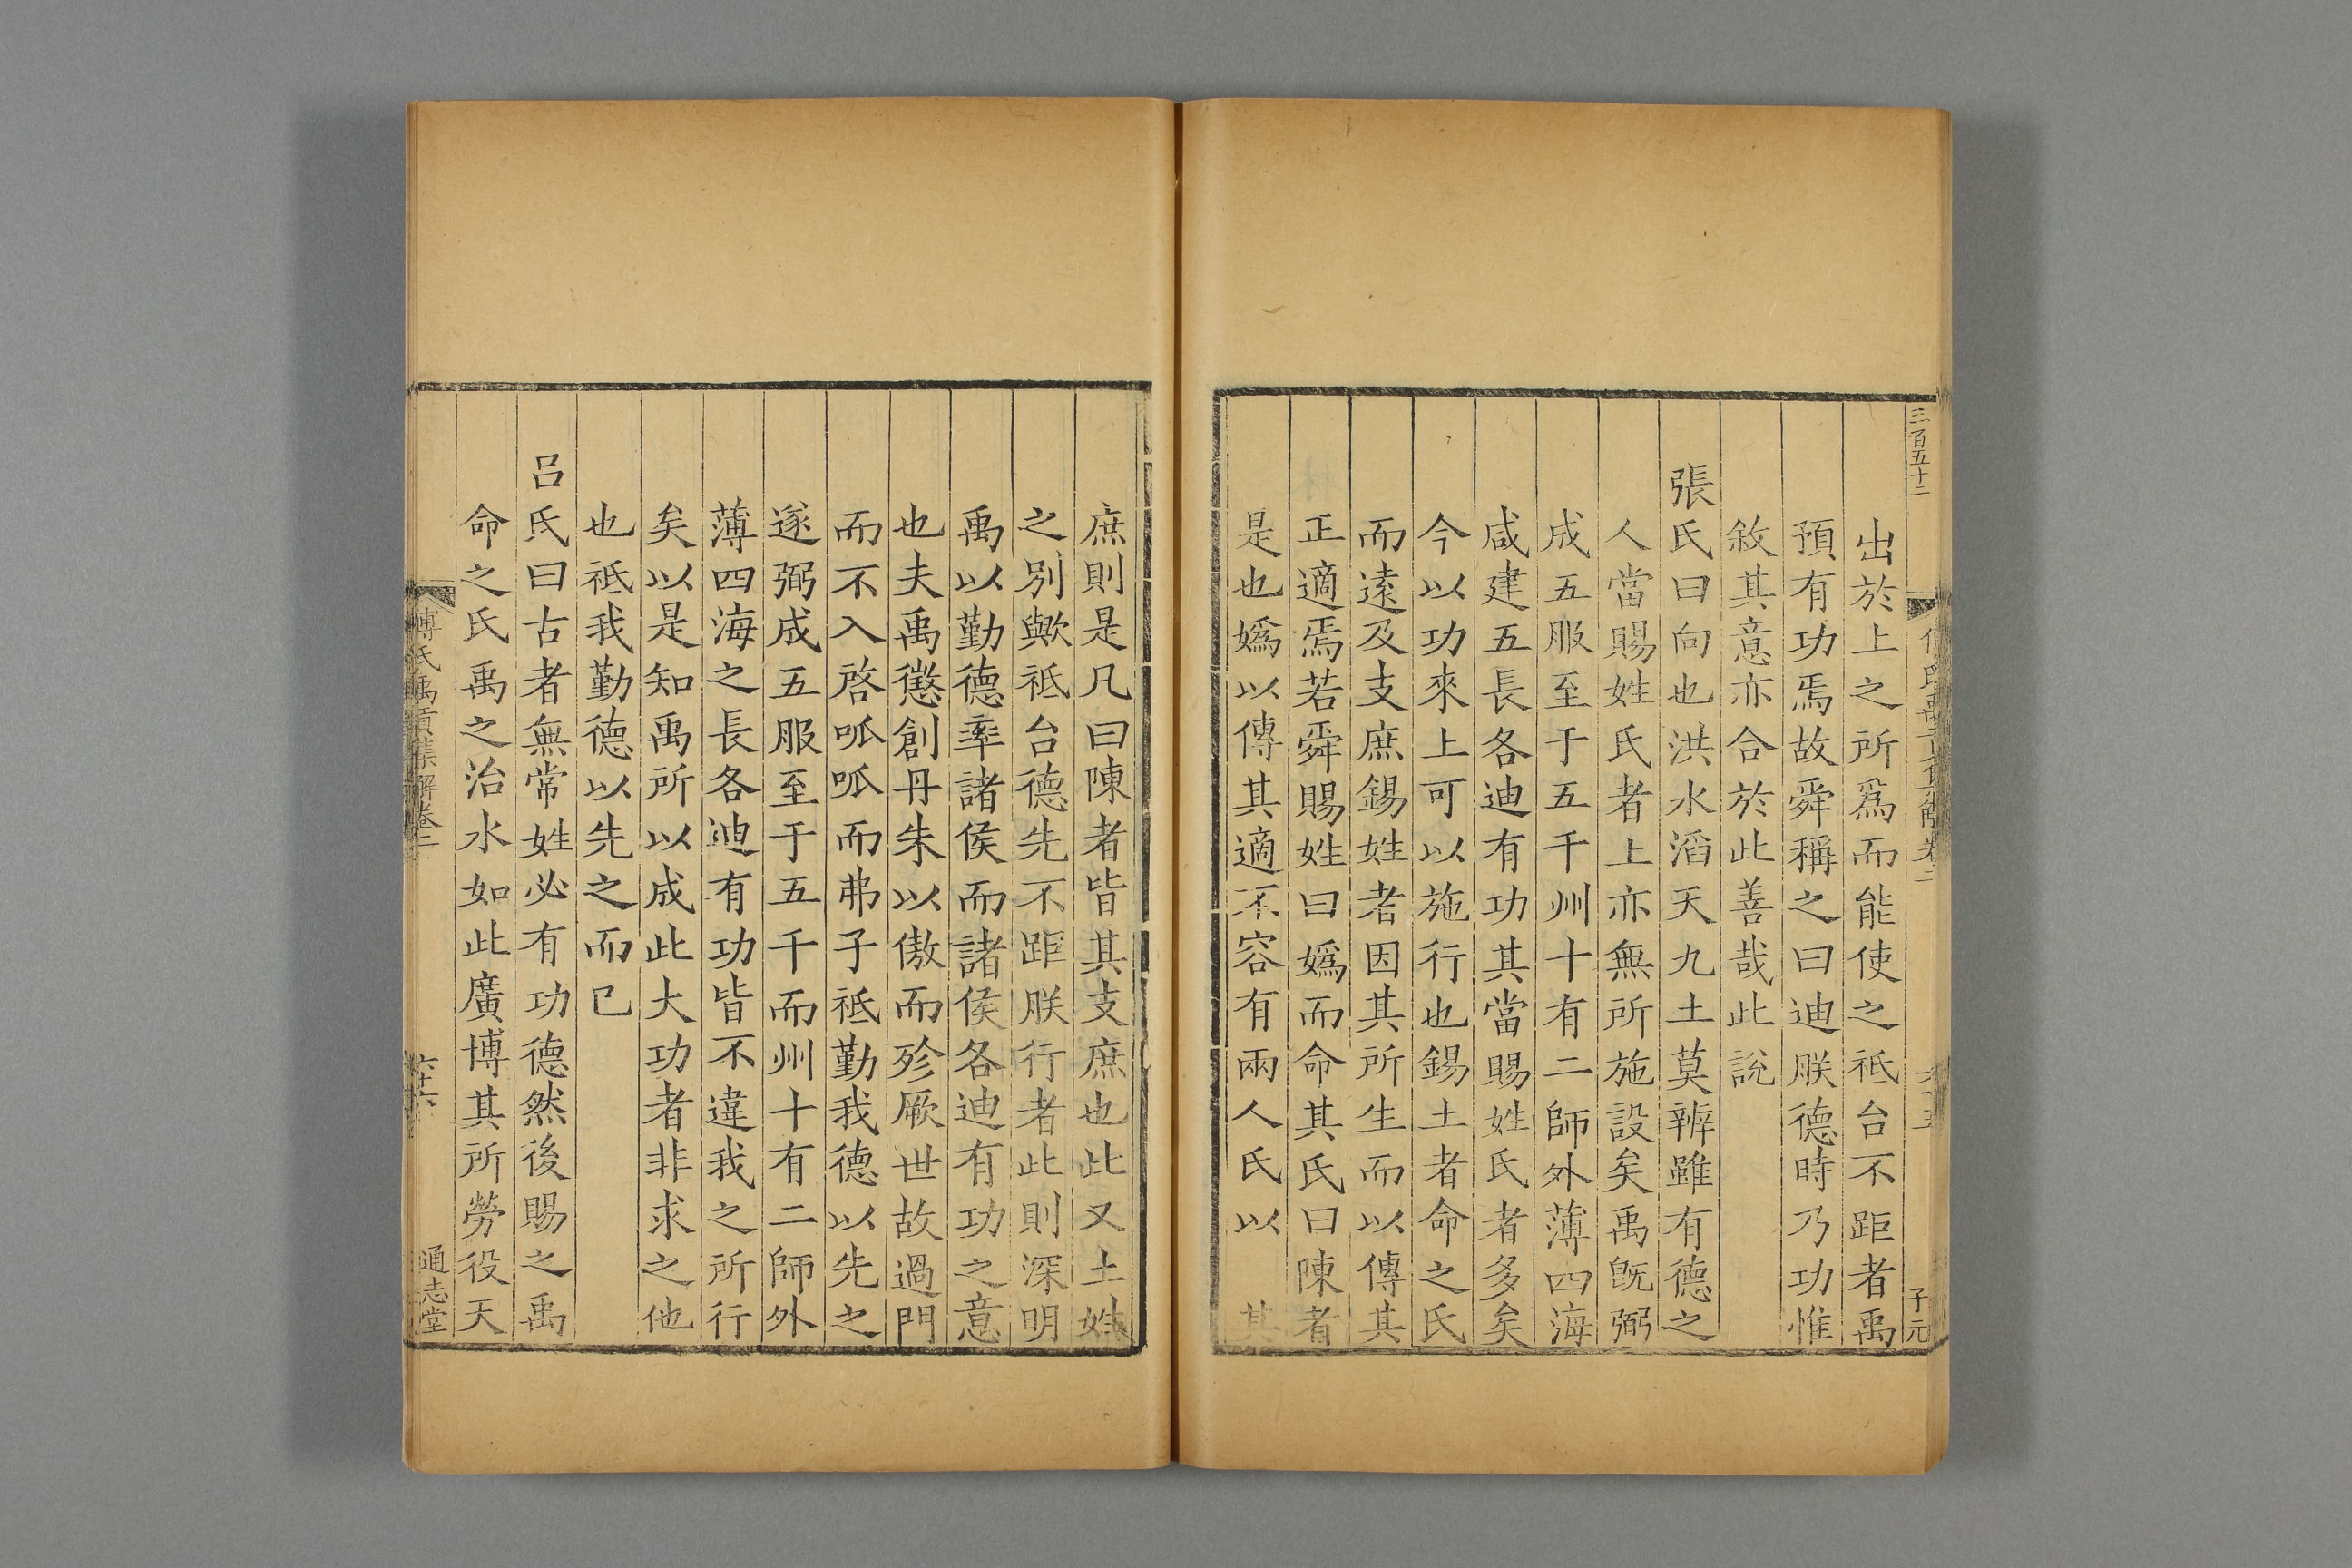 三百五十二
子元
出於上之所爲而能使之祗台不距者禹
預有功焉故舜稱之曰迪朕德時乃功惟
敘其意亦合於此善哉此說
張氏曰向也洪水滔天九土莫辨雖有德之
人當賜姓氏者上亦無所施設矣禹旣弼
成五服至于五千州十有二師外薄四海
咸建五長各迪有功其當賜姓氏者多矣
今以功來上可以施行也錫土者命之氏
而遠及支庶錫姓者因其所生而以傳其
正適焉若舜賜姓曰嬀而命其氏曰陳者
是也嬀以傳其適不容有兩人氏以其
庶則是凡曰陳者皆其支庶也此又土姓
之別歟祗台德先不距朕行者此則深明
禹以勤德率諸侯而諸侯各迪有功之意
也夫禹懲創丹朱以傲而殄厥世故過門
而不入啓呱呱而弗子祗勤我德以先之
遂弼成五服至于五千而州十有二師外
薄四海之長各迪有功皆不違我之所行
矣以是知禹所以成此大功者非求之他
也祗我勤德以先之而已
呂氏曰古者無常姓必有功德然後賜之禹
命之氏禹之治水如此廣博其所勞役天
傅氏禹貢集解卷二
六十六
通志堂